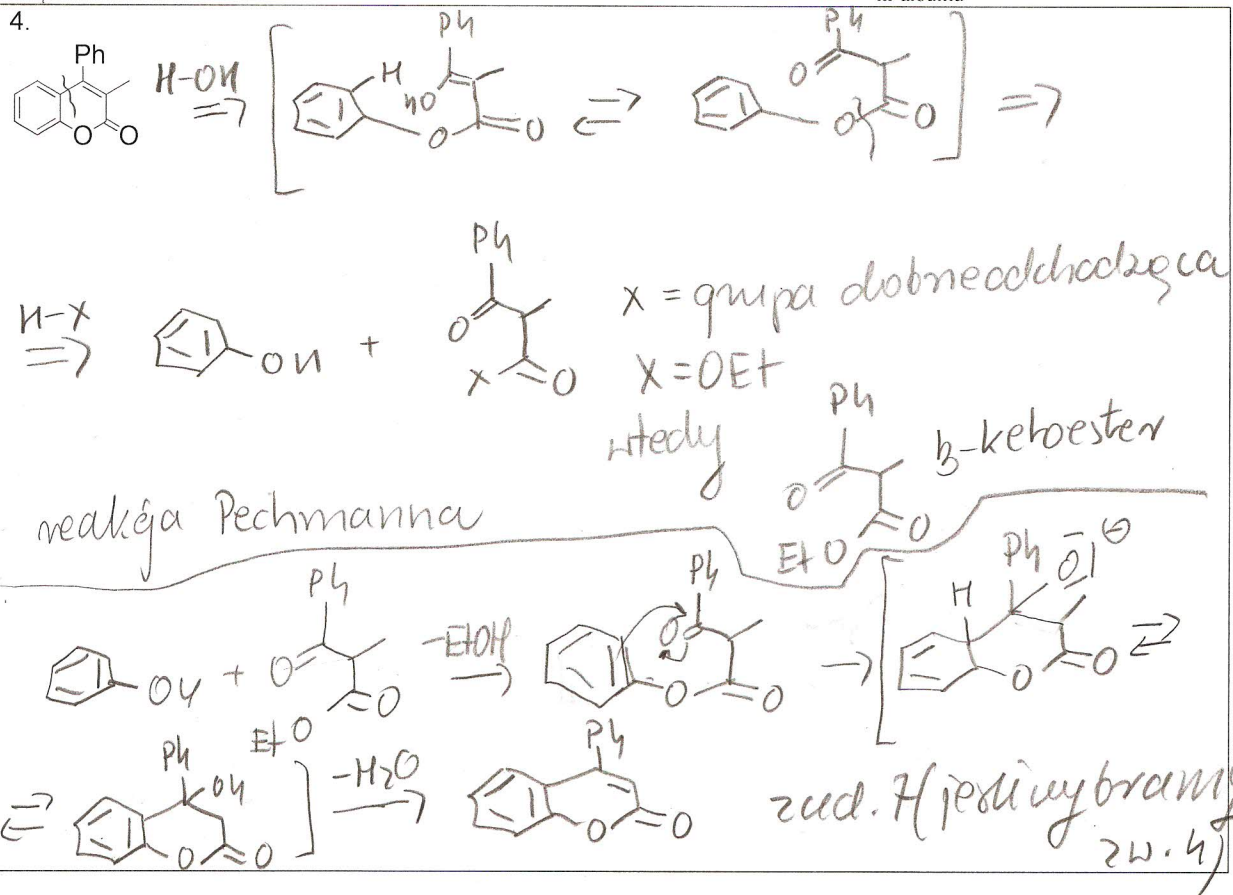 4.
Ph
O O
H-OH
Ph
H
HO
O O
Ph
O
O O
H-X
OH
+
Ph
O
X O
X = grupa dobrze odchodząca
X = OEt
wtedy
Ph
O
EtO O
β-ketoester
reakcja Pechmanna
OH
+
Ph
O
EtO O
-EtOH
Ph
O
O O
H
Ph
O ⊖
O O
Ph
OH
O O
-H2O
Ph
O O
zad. 7 (jeśli wybrany
zw. 4)